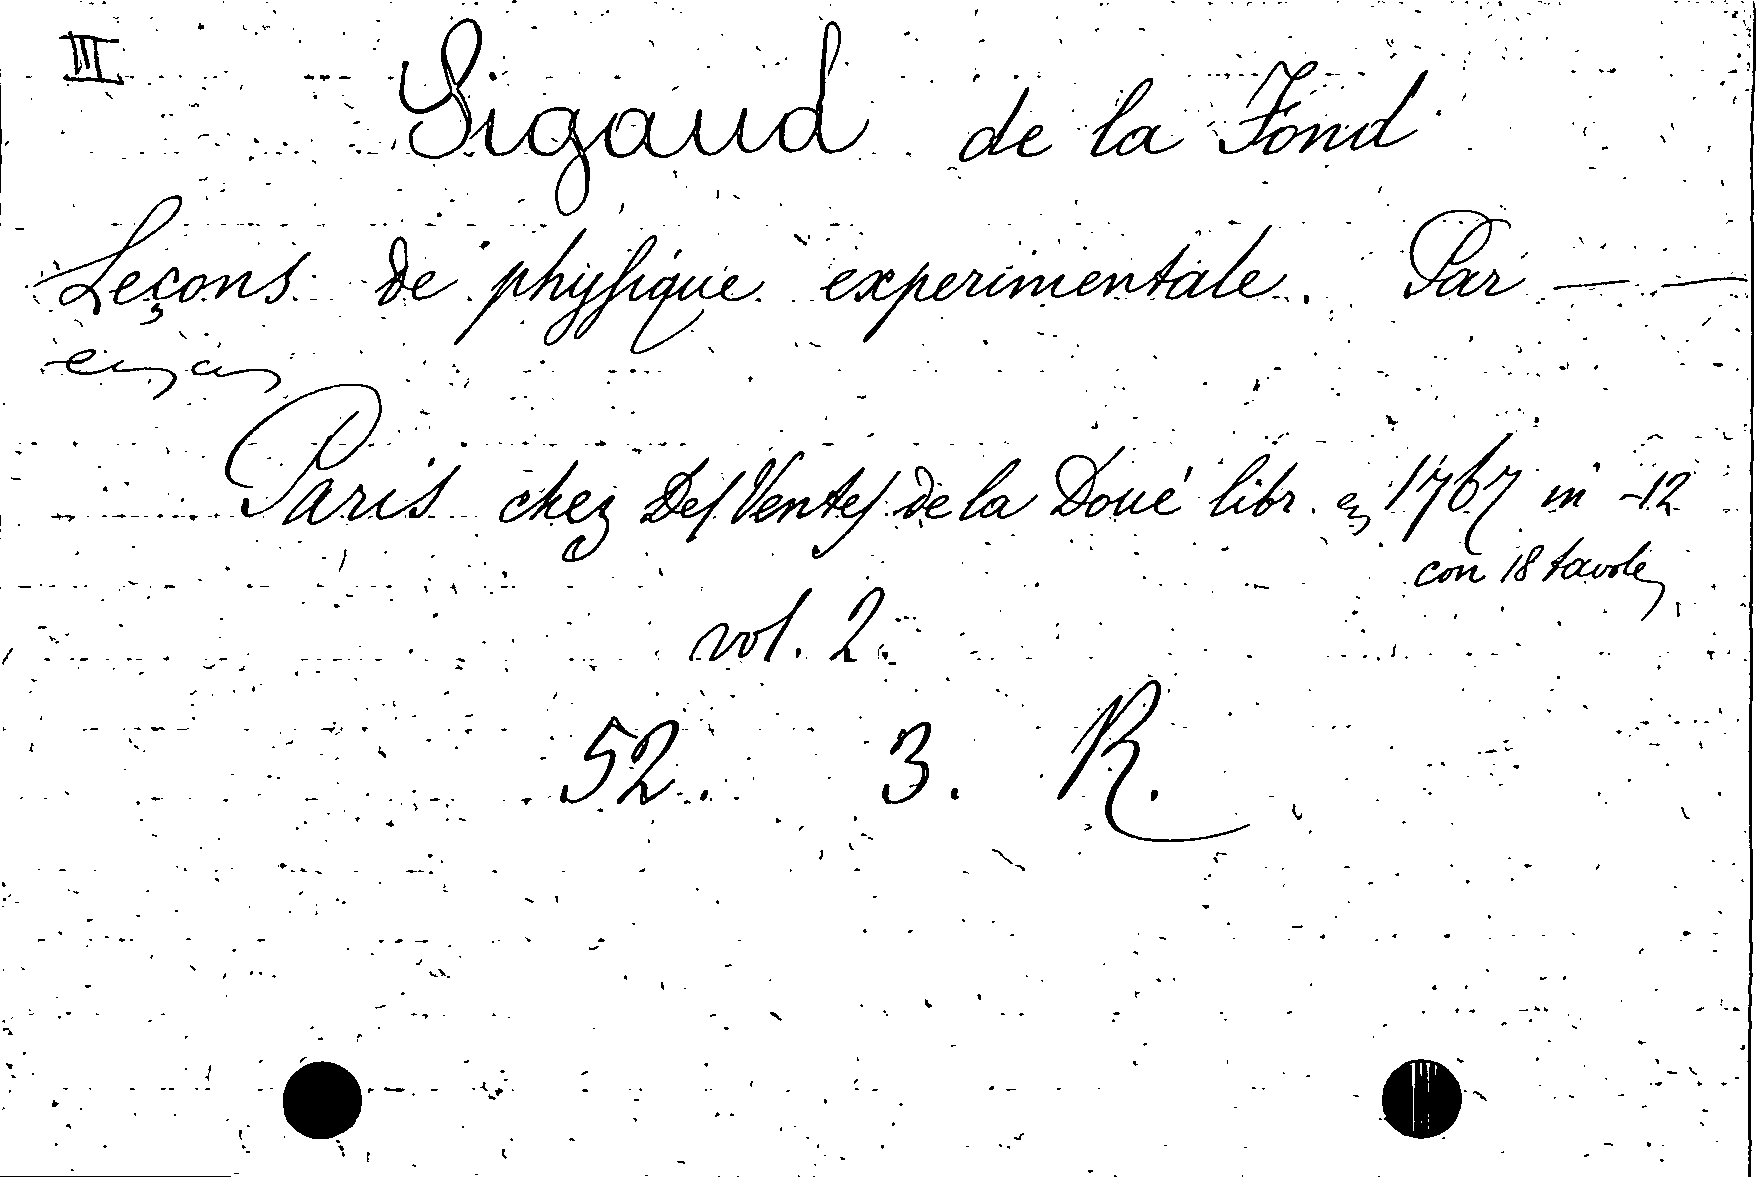 III Sigaud de la Fond
Leçons de physique experimentale. Par — —
Paris chez Des Ventes de la Doué libr. 1767 in -12
con 18 tavole
vol. 2.
52. 3. R.